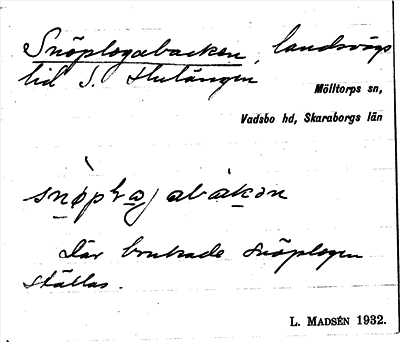 Snöplogabacken, landsväg
vid S. Hulängen
Mölltorps sn,
Vadsbo hd, Skaraborgs län
Där brukade snöplogen
ställas.
L. MADSÉN 1932.